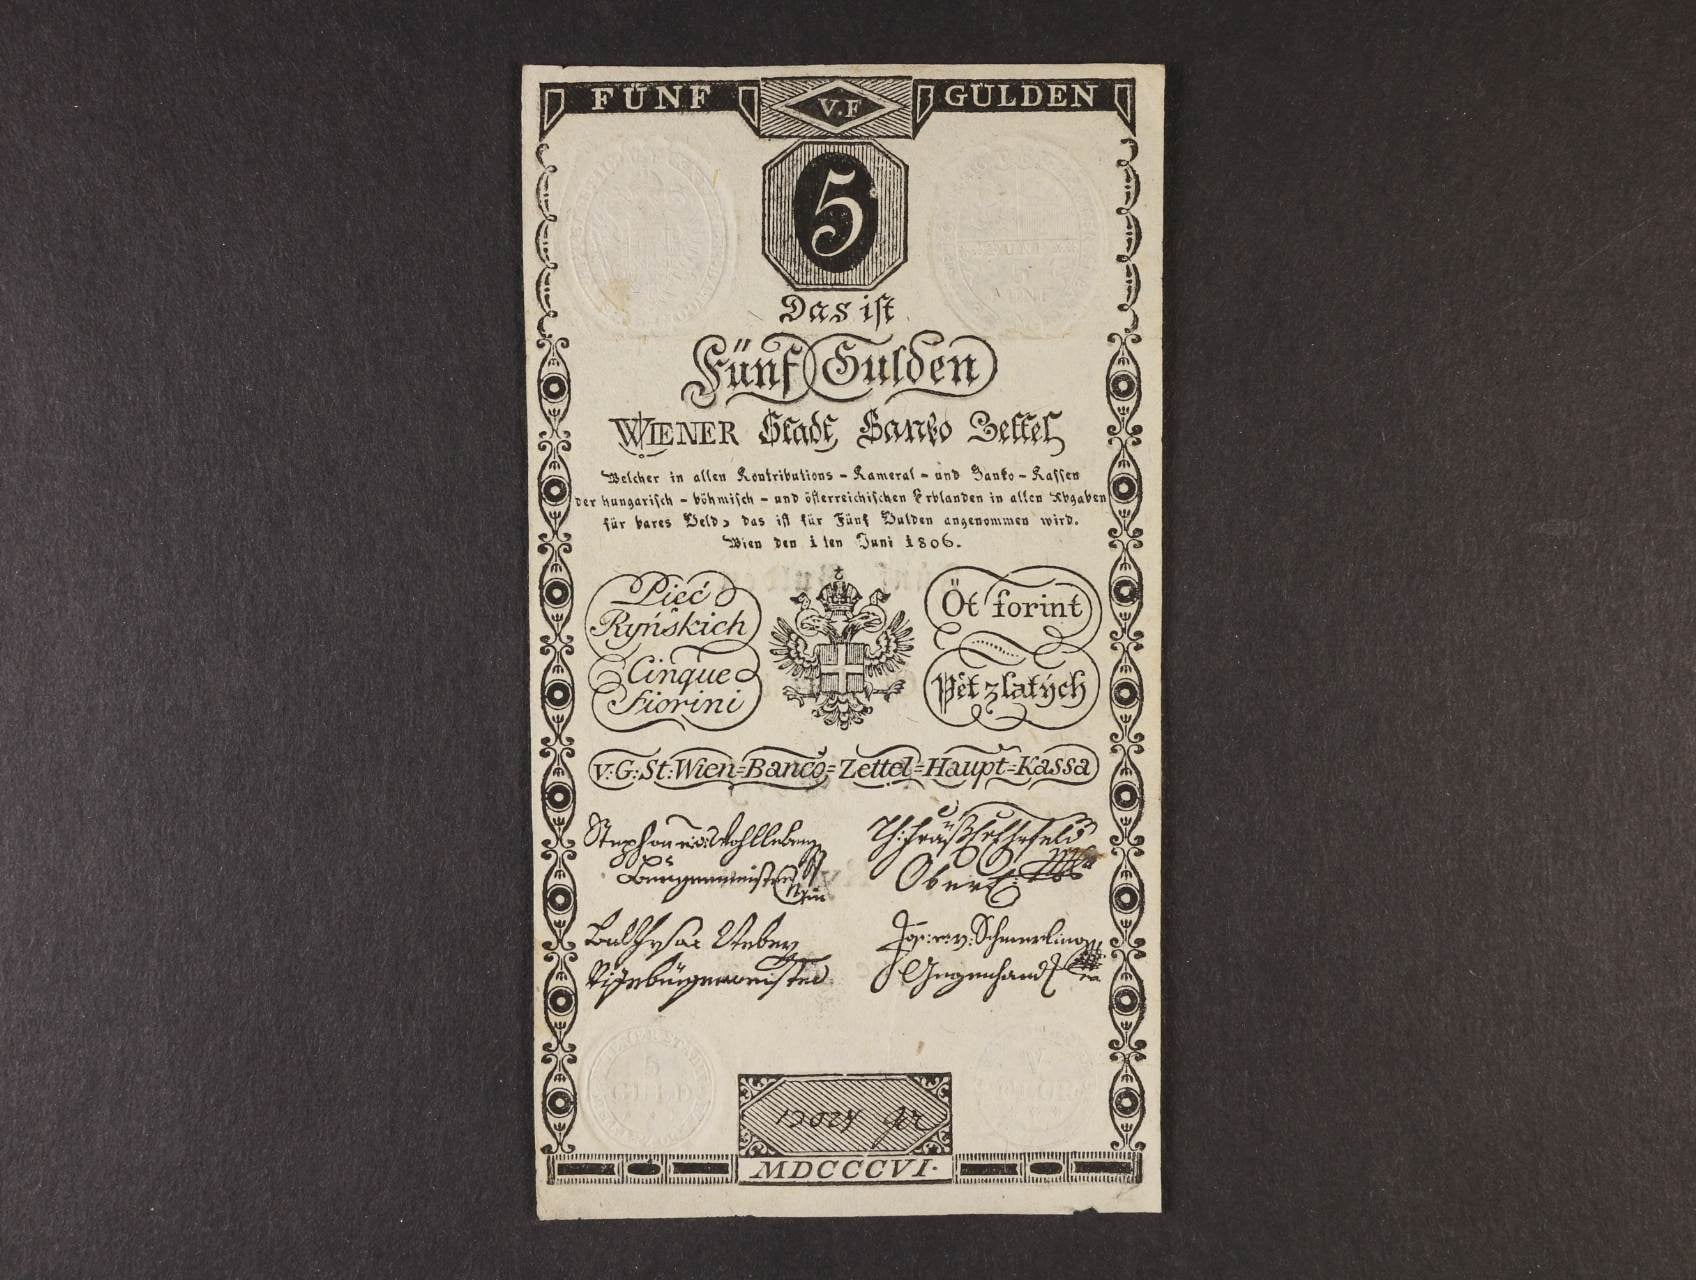 FÜNF V.F GULDEN
5
Das ist
Fünf Gulden
WIENER Stadt Banko Zettel
Welcher in allen Kontributions - Kameral - und Banko - Kassen
der hungarisch - böhmisch - und österreichischen Erblanden in allen Abgaben
für bares Geld, das ist für Fünf Gulden angenommen wird.
Wien den 1ten Juni 1806.
Pieć
Ryńskich
Cinque
Fiorini
Öt forint
Pět zlatých
V:G:St:Wien=Banco=Zettel=Haupt=Kassa
Stephan v: Wohlleben
Bürgermeister
Oberl:
Vizebürgermeister
Jos: v: Schmerling
Gegenhand
5
GULD
MDCCCVI.